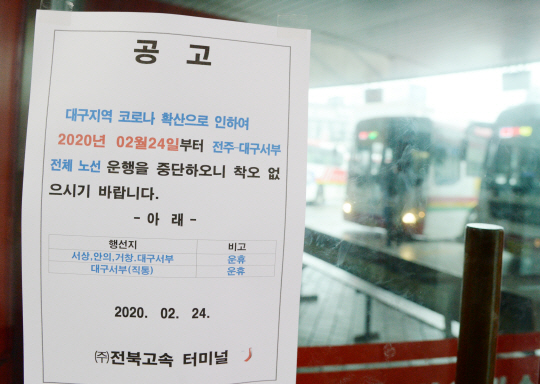 공 고
대구지역 코로나 확산으로 인하여
2020년 02월24일부터 전주-대구서부
전체 노선 운행을 중단하오니 착오 없
으시기 바랍니다.
- 아 래 -
행선지 비고
서상,안의,거창.대구서부 운휴
대구서부(직통) 운휴
2020. 02. 24.
㈜전북고속 터미널